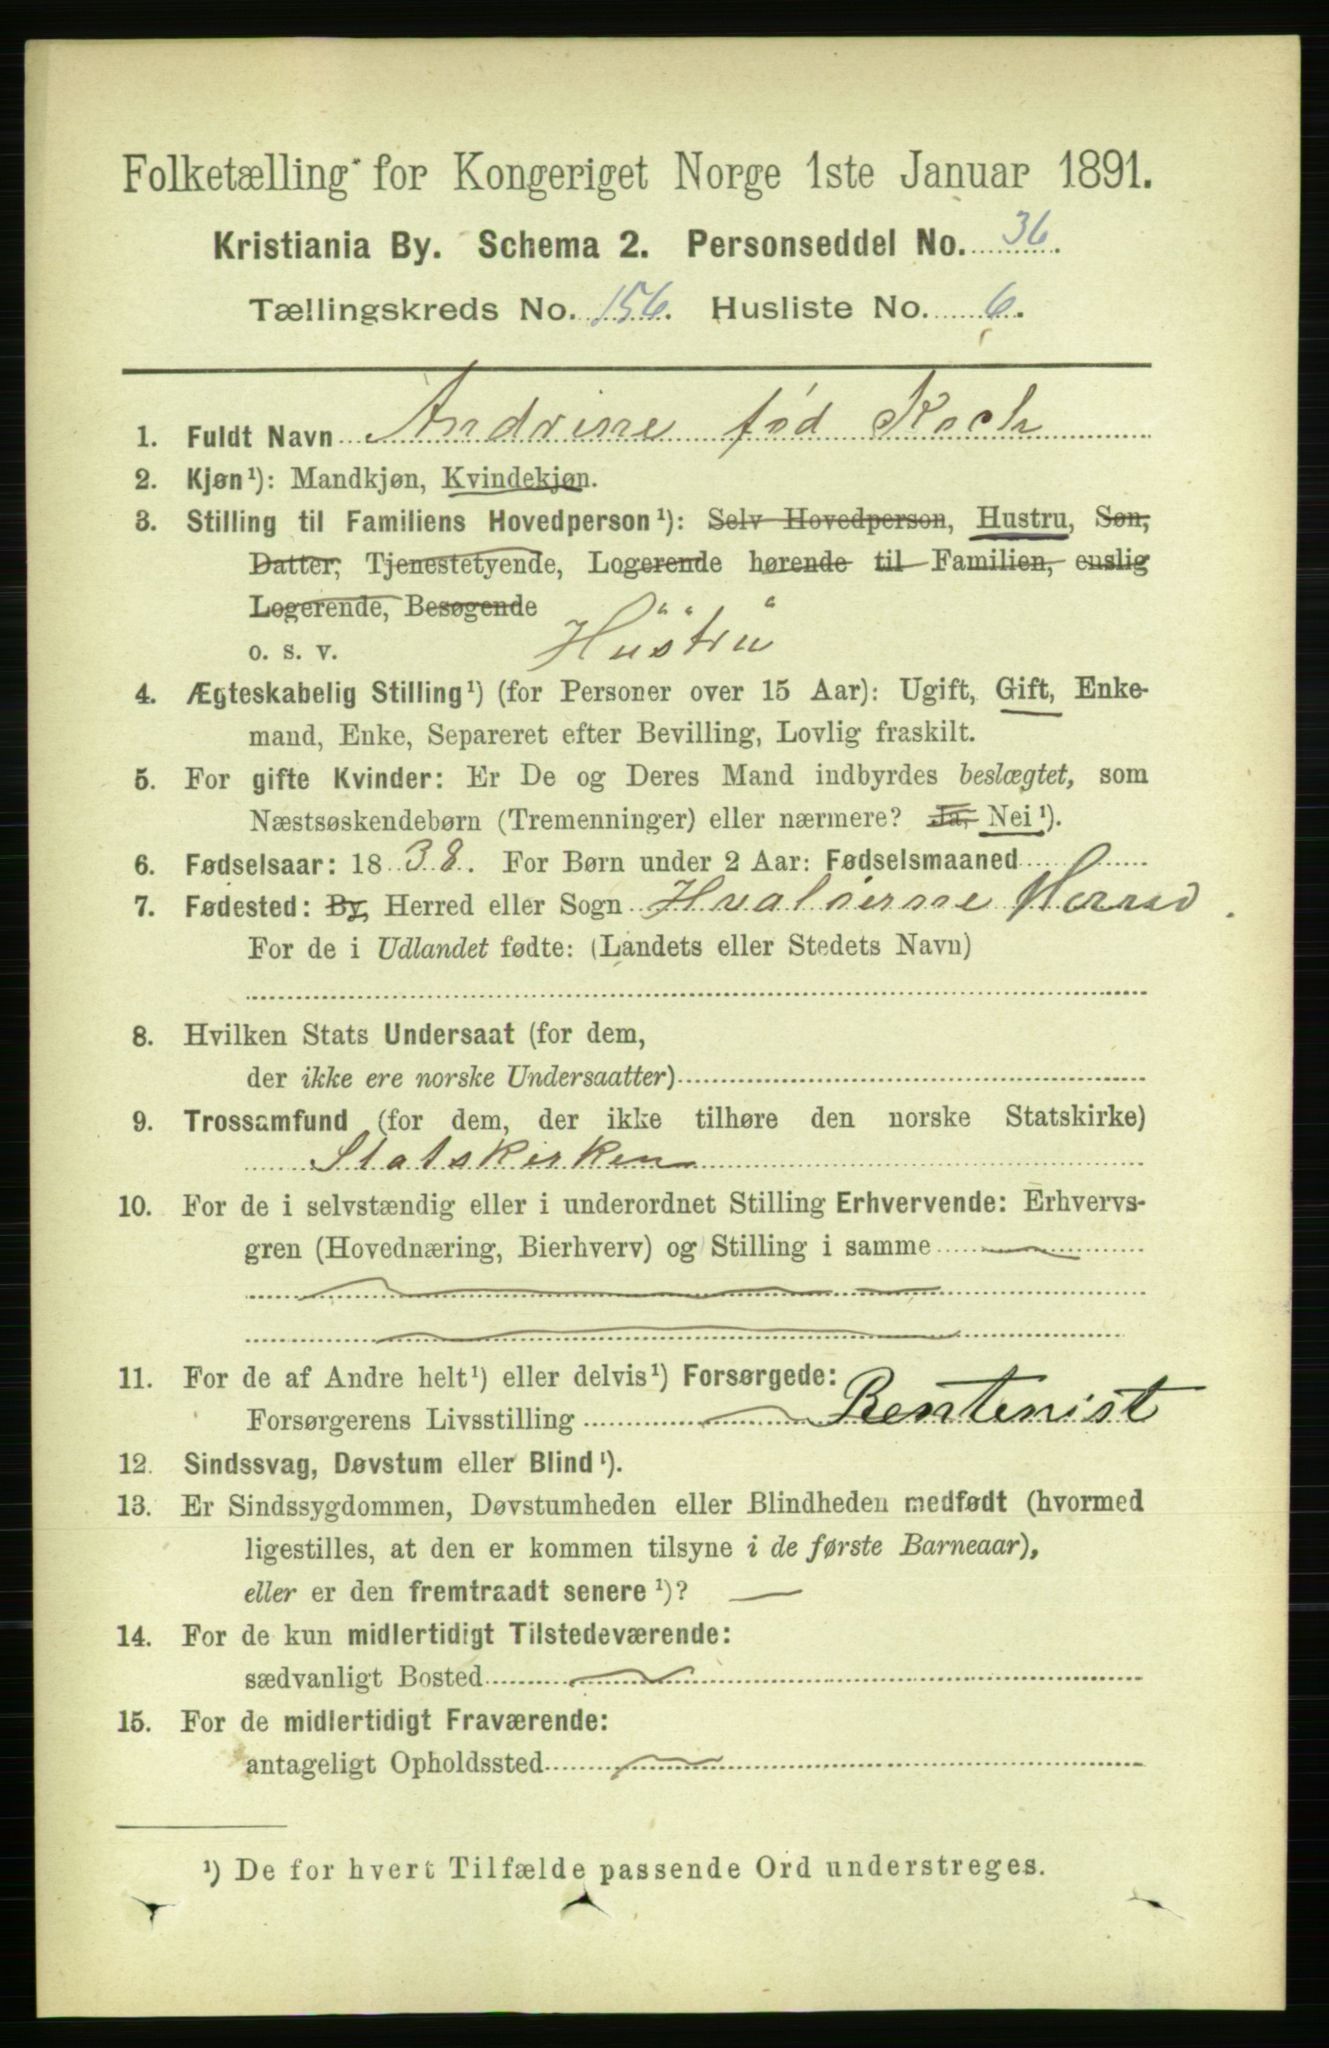 Folketælling for Kongeriget Norge 1ste Januar 1891.
Kristiania By. Schema 2. Personseddel No. 36.
Tællingskreds No. 156. Husliste No. 6.
1. Fuldt Navn Andrine fød Koch
2. Kjøn¹): Mandkjøn, Kvindekjøn.
3. Stilling til Familiens Hovedperson¹): Selv Hovedperson, Hustru, Søn,
Datter, Tjenestetyende, Logerende hørende til Familien, enslig
Logerende, Besøgende
o. s. v. Hüstrü
4. Ægteskabelig Stilling¹) (for Personer over 15 Aar): Ugift, Gift, Enke-
mand, Enke, Separeret efter Bevilling, Lovlig fraskilt.
5. For gifte Kvinder: Er De og Deres Mand indbyrdes beslægtet, som
Næstsøskendebørn (Tremenninger) eller nærmere? Ja, Nei¹).
6. Fødselsaar: 1838. For Børn under 2 Aar: Fødselsmaaned
7. Fødested: By, Herred eller Sogn Hvaløerne Herred.
For de i Udlandet fødte: (Landets eller Stedets Navn)
8. Hvilken Stats Undersaat (for dem,
der ikke ere norske Undersaatter)
9. Trossamfund (for dem, der ikke tilhøre den norske Statskirke)
Statskirken
10. For de i selvstændig eller i underordnet Stilling Erhvervende: Erhvervs-
gren (Hovednæring, Bierhverv) og Stilling i samme
11. For de af Andre helt¹) eller delvis¹) Forsørgede:
Forsørgerens Livsstilling Rentenist
12. Sindssvag, Døvstum eller Blind¹).
13. Er Sindssygdommen, Døvstumheden eller Blindheden medfødt (hvormed
ligestilles, at den er kommen tilsyne i de første Barneaar),
eller er den fremtraadt senere¹)? —
14. For de kun midlertidigt Tilstedeværende:
sædvanligt Bosted
15. For de midlertidigt Fraværende:
antageligt Opholdssted
¹) De for hvert Tilfælde passende Ord understreges.